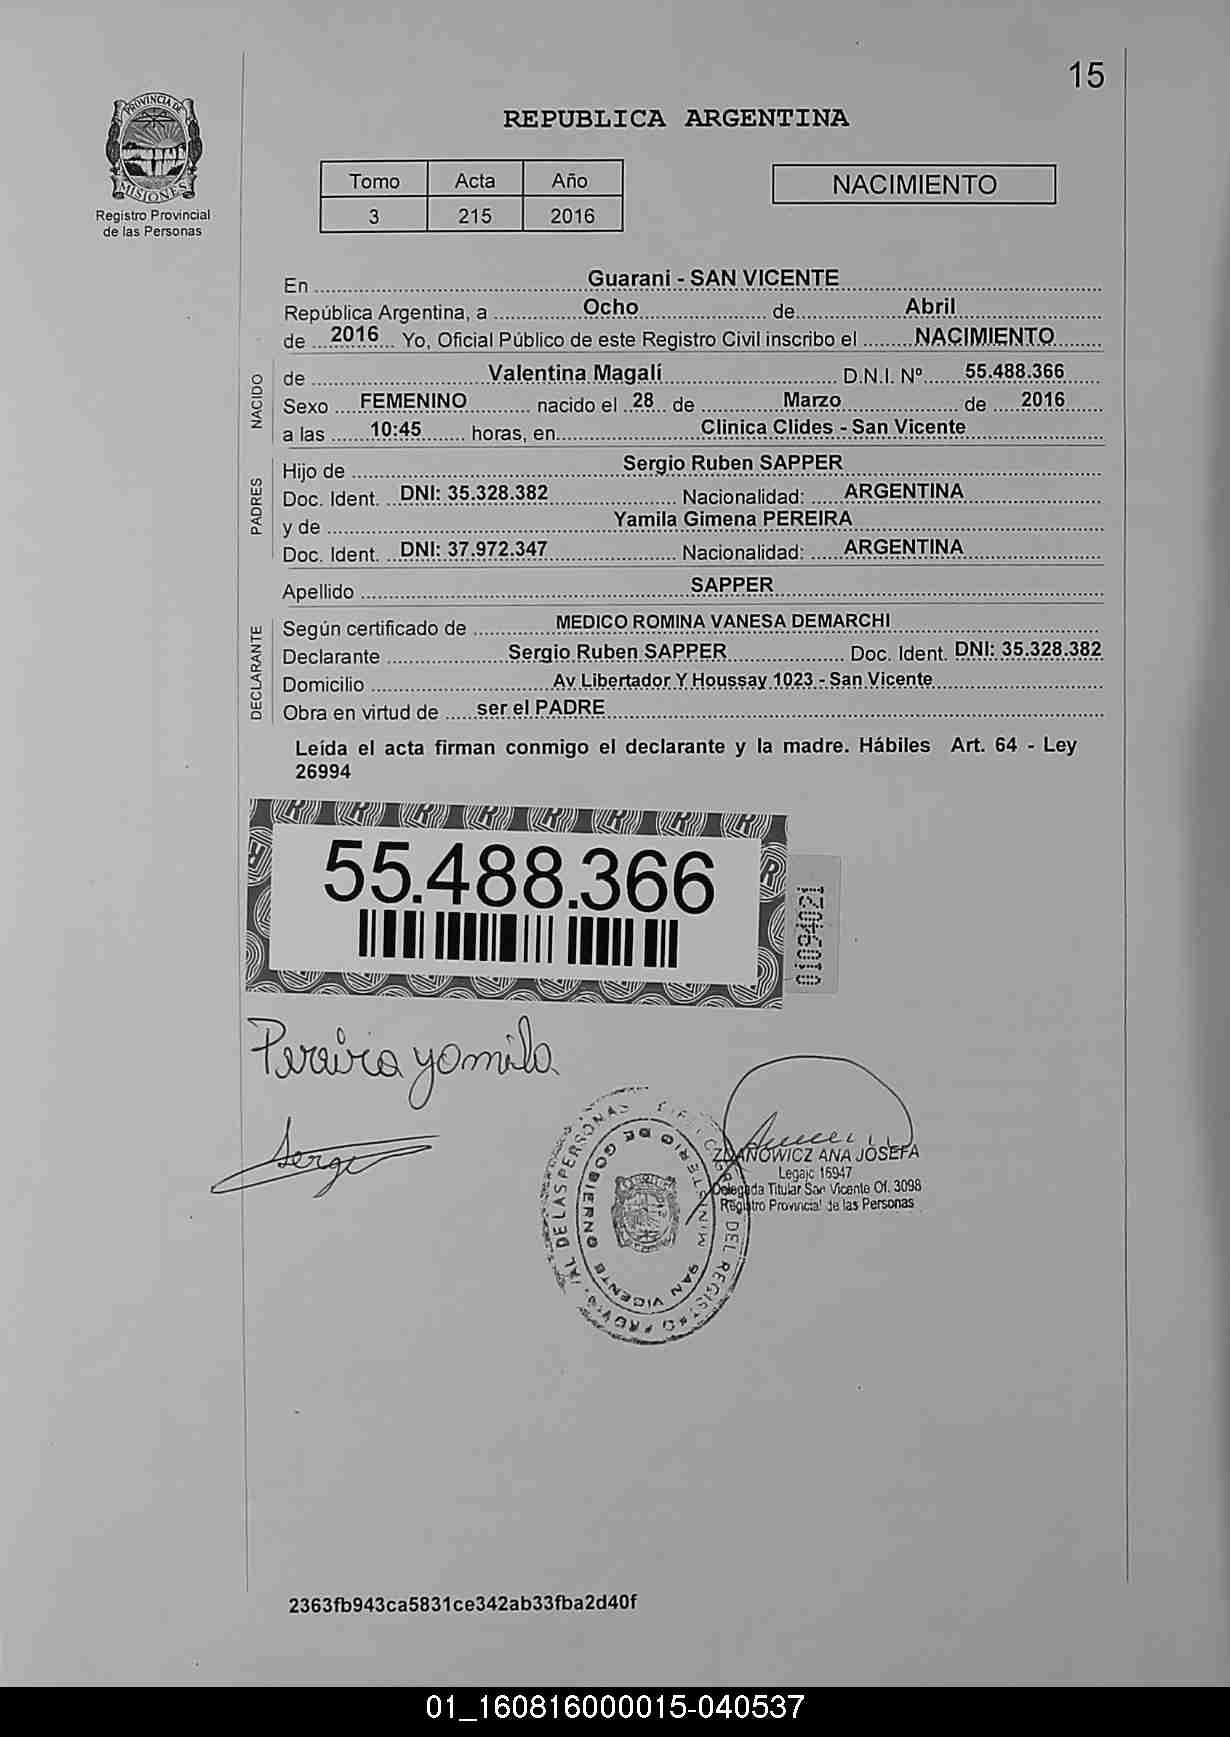 15
PROVINCIA DE
MISIONES
Registro Provincial
de las Personas
REPUBLICA ARGENTINA
Tomo Acta Año
3 215 2016
NACIMIENTO
En Guarani - SAN VICENTE
República Argentina, a Ocho de Abril
de 2016 Yo, Oficial Público de este Registro Civil inscribo el NACIMIENTO
NACIDO
de Valentina Magalí D.N.I. Nº 55.488.366
Sexo FEMENINO nacido el 28 de Marzo de 2016
a las 10:45 horas, en Clinica Clides - San Vicente
PADRES
Hijo de Sergio Ruben SAPPER
Doc. Ident. DNI: 35.328.382 Nacionalidad: ARGENTINA
y de Yamila Gimena PEREIRA
Doc. Ident. DNI: 37.972.347 Nacionalidad: ARGENTINA
Apellido SAPPER
DECLARANTE
Según certificado de MEDICO ROMINA VANESA DEMARCHI
Declarante Sergio Ruben SAPPER Doc. Ident. DNI: 35.328.382
Domicilio Av Libertador Y Houssay 1023 - San Vicente
Obra en virtud de ser el PADRE
Leída el acta firman conmigo el declarante y la madre. Hábiles Art. 64 - Ley
26994
55.488.366
01094021
Pereira yamila
Sergi
ZDANOWICZ ANA JOSEFA
Legajo 15947
Delegada Titular San Vicente Of. 3098
Registro Provincial de las Personas
DEL REGISTRO PROV. DE LAS PERSONAS
MINISTERIO DE GOBIERNO
SAN VICENTE
2363fb943ca5831ce342ab33fba2d40f
01_160816000015-040537